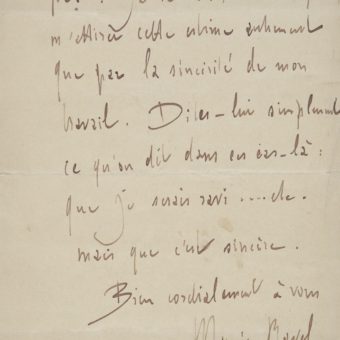 m'attirer cette estime autrement
que par la sincérité de mon
travail. Dites-lui simplement
ce qu'on dit dans ces cas-là :
que je serais ravi ....etc.
mais que c'est sincère.
Bien cordialement à vous
Maurice Ravel